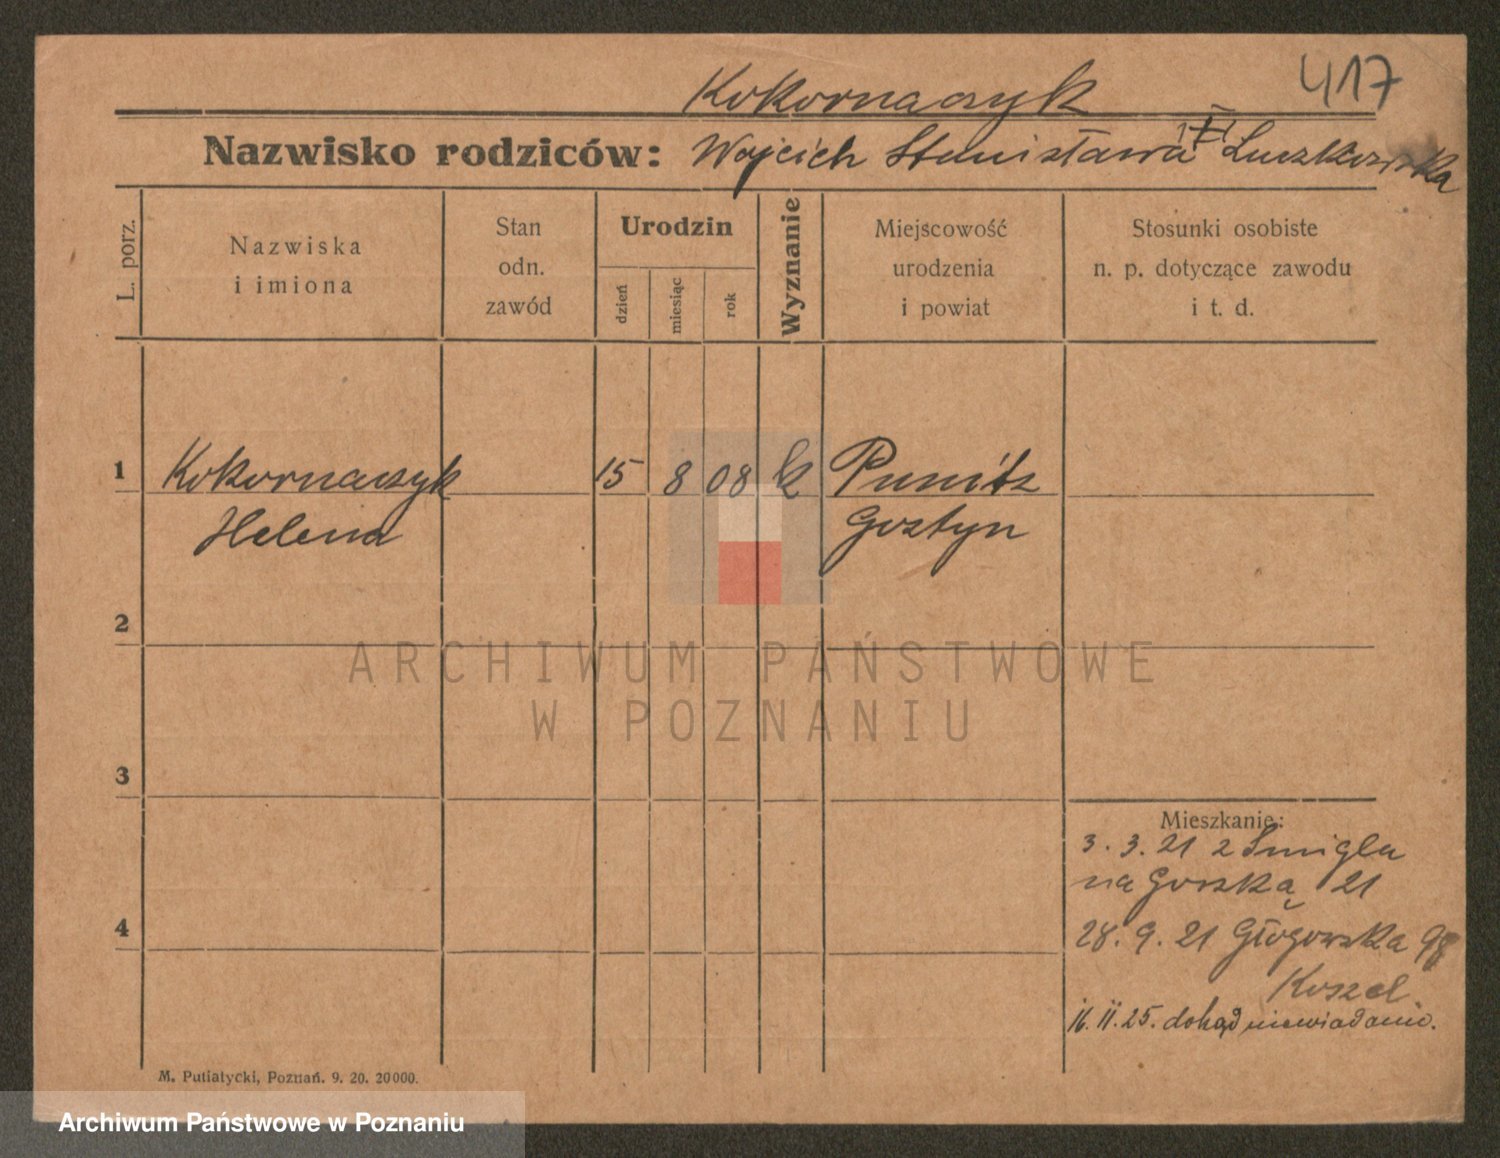 417
Kokornaczyk
Nazwisko rodziców: Wojcich Stanisława Luczkowska
L. porz.
Nazwiska
i imiona
Stan
odn.
zawód
Urodzin
dzień
miesiąc
rok
Wyznanie
Miejscowość
urodzenia
i powiat
Stosunki osobiste
n. p. dotyczące zawodu
i t. d.
1
Kokornaczyk
Helena
15 8 08 k
Punitz
Gostyn
2
3
4
Mieszkanie:
3. 3. 21 z Śmigla
na Gorską 21
28. 9. 21 Głogowska 98
Koszel.
16. II. 25. dokąd niewiadomo.
M. Putiatycki, Poznań. 9. 20. 20000.
ARCHIWUM PAŃSTWOWE
W POZNANIU
Archiwum Państwowe w Poznaniu